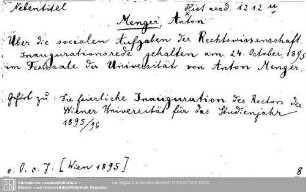 Nebentitel
Hist. acad. 1212
Menger, Anton
Über die socialen Aufgaben der Rechtswissenschaft.
Inaugurationsrede gehalten am 24. October 1895
im Festsaale der Universität von Anton Menger.
Gehört zu: Die feierliche Inauguration des Rectors der
Wiener Universität für das Studienjahr
1895/96
o. O. o. J. [Wien 1895]